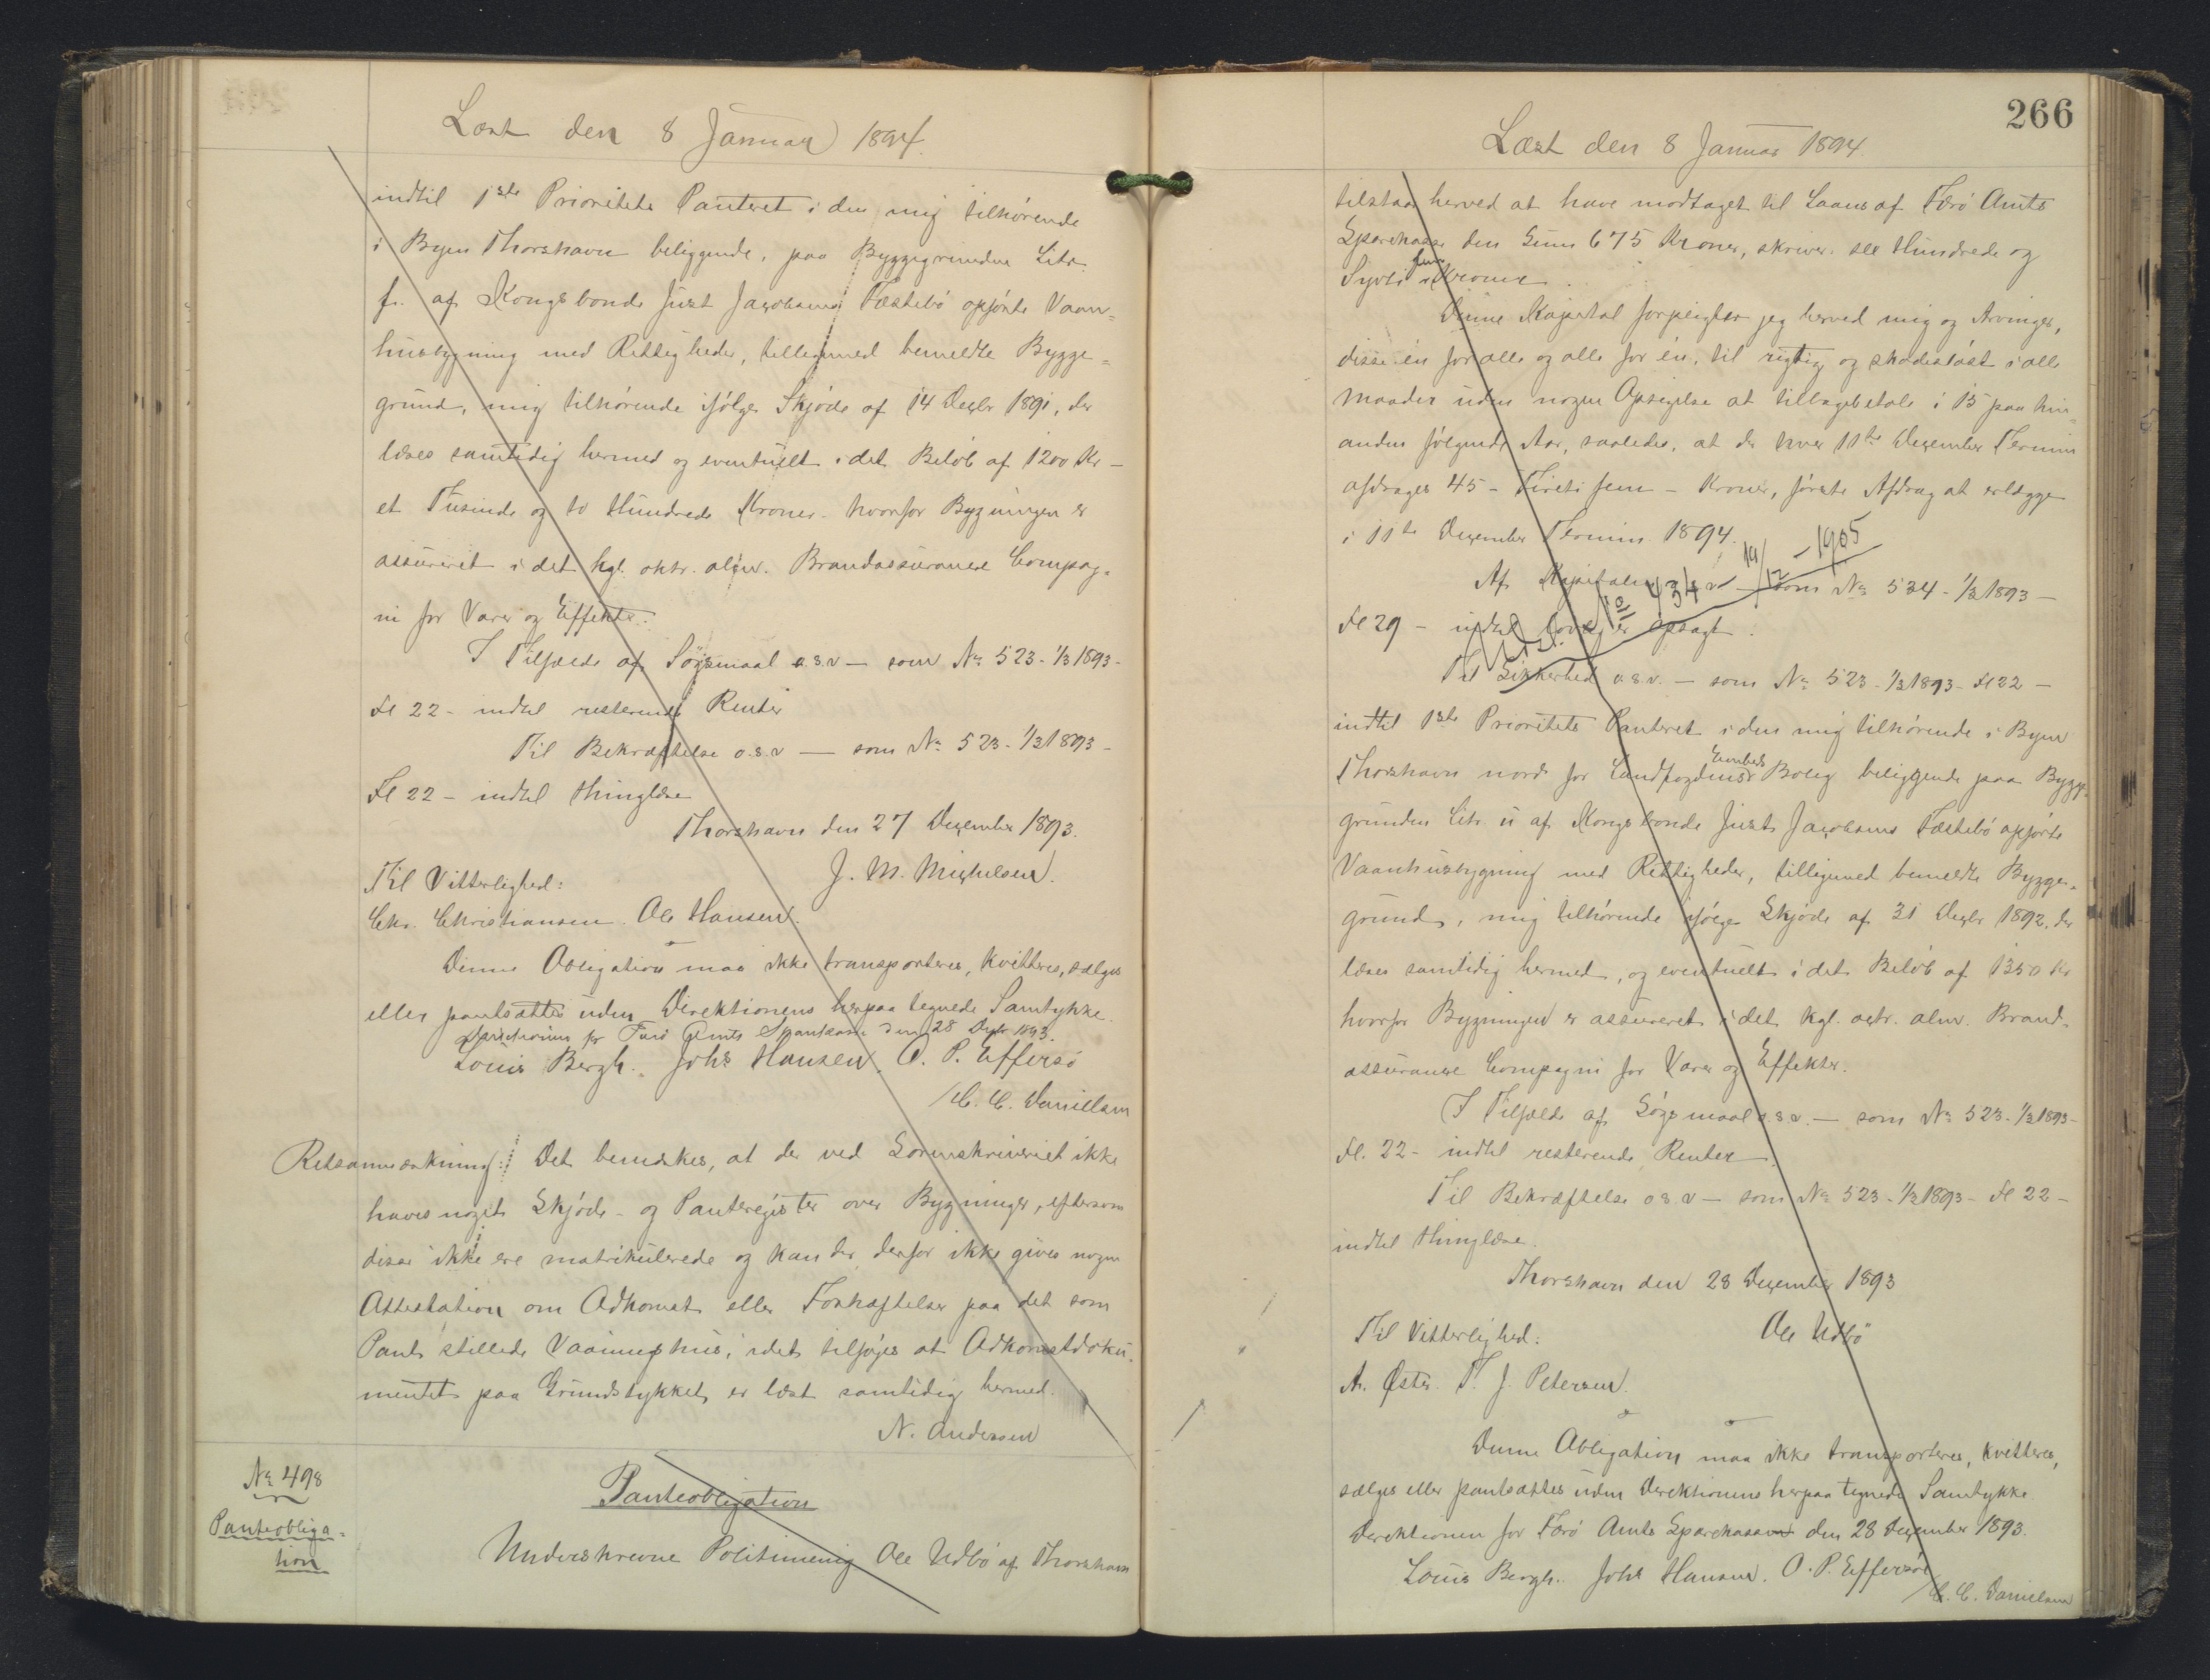 Læst den 8 Januar 1894.
indtil 1ste Prioritets Panteret i den mig tilhørende
i Byen Thorshavn beliggende, paa Byggegrunden Litr.
f. af Kongsbonde Just Jacobsens Fæstebö opførte Vaan-
husbygning med Rettigheder, tilligemed bemeldte Bygge-
grund, mig tilhørende ifølge Skjøde af 14 Decbr 1891, der
læses samtidig hermed og eventuelt i det Beløb af 1200 Kr -
et Tusinde og to Hundrede Kroner - hvorfor Bygningen er
assureret i det kgl. oktr. almr. Brandassurance Compag-
ni for Varer og Effekter.
I Tilfælde af Søgsmaal o.s.v - som No 523 - 1/3 1893 -
Fl 22 - indtil resterende Renter
Til Bekræftelse o.s.v - som No 523 - 1/3 1893 -
Fl 22 - indtil thinglæse
Thorshavn den 27 December 1893.
J. M. Michelsen.
Til Vitterlighed:
Chr. Christiansen. Ole Hansen.
Denne Obligation maa ikke transporteres, kvitteres, sælges
eller pantsættes uden Direktionens herpaa tegnede Samtykke.
Direktionen for Færö Amts Sparekasse den 28 Decbr 1893.
Louis Bergh. Johs Hansen. O. P. Effersö
/C. C. Danielsen
Retsanmærkning: Det bemærkes, at der ved Sorenskriveriet ikke
haves noget Skjøde- og Panteregister over Bygninger, eftersom
disse ikke ere matrikulerede og kan der derfor ikke gives nogen
Attestation om Adkomst eller Forhæftelser paa det som
Pant stillede Vaaningshus, idet tilføjes at Adkomstdoku-
mentet paa Grundstykket er læst samtidig hermed.
N. Andersen
No 498
Panteobliga-
tion
Panteobligation
Underskrevne Politimenig Ole Udbö af Thorshavn
266
Læst den 8 Januar 1894.
tilstaar herved at have modtaget til Laans af Færö Amts
Sparekasse den Sum 675 Kroner, skriver sex Hundrede og
Syvti fem Kroner.
Denne Kapital forpligter jeg herved mig og Arvinger,
disse én for alle og alle for én, til rigtig og skadesløst i alle
Maader uden nogen Opsigelse at tilbagebetale i 15 paa hin-
anden følgende Aar, saaledes, at der hver 11te December Termin
afdrages 45 - Firti fem - Kroner, første Afdrag at erlægge
i 11te December Termin 1894.
19/12 - 1905
Af Kapitalen o.s.v - som No 534 - 1/3 1893 -
Fl 29 - indtil lovlig er opsagt.
Til Sikkerhed o.s.v. - som No 523 - 1/3 1893 - Fl 22 -
indtil 1ste Prioritets Panteret i den mig tilhørende i Byen
Thorshavn nord for Landfogdens Embeds Bolig beliggende paa Bygge-
grunden Litr. u af Kongsbonde Just Jacobsens Fæstebö opførte
Vaanhusbygning med Rettigheder, tilligemed bemeldte Bygge-
grund, mig tilhørende ifølge Skjøde af 31 Decbr 1892, der
læses samtidig hermed, og eventuelt i det Beløb af 1350 Kr
hvorfor Bygningen er assureret i det kgl. octr. almr. Brand-
assurance Compagni for Varer og Effekter.
I Tilfælde af Søgsmaal o.s.v. - som No 523 - 1/3 1893 -
Fl. 22 - indtil resterende Renter.
Til Bekræftelse o.s.v - som No 523 - 1/3 1893 - Fl 22 -
indtil thinglæse.
Thorshavn den 28 December 1893
Ole Udbö
Til Vitterlighed:
A. Øster. T. J. Petersen.
Denne Obligation maa ikke transporteres, kvitteres,
sælges eller pantsættes uden Direktionens herpaa tegnede Samtykke.
Direktionen for Færö Amts Sparekasse den 28 December 1893.
Louis Bergh. Johs Hansen. O. P. Effersöe
/C. C. Danielsen